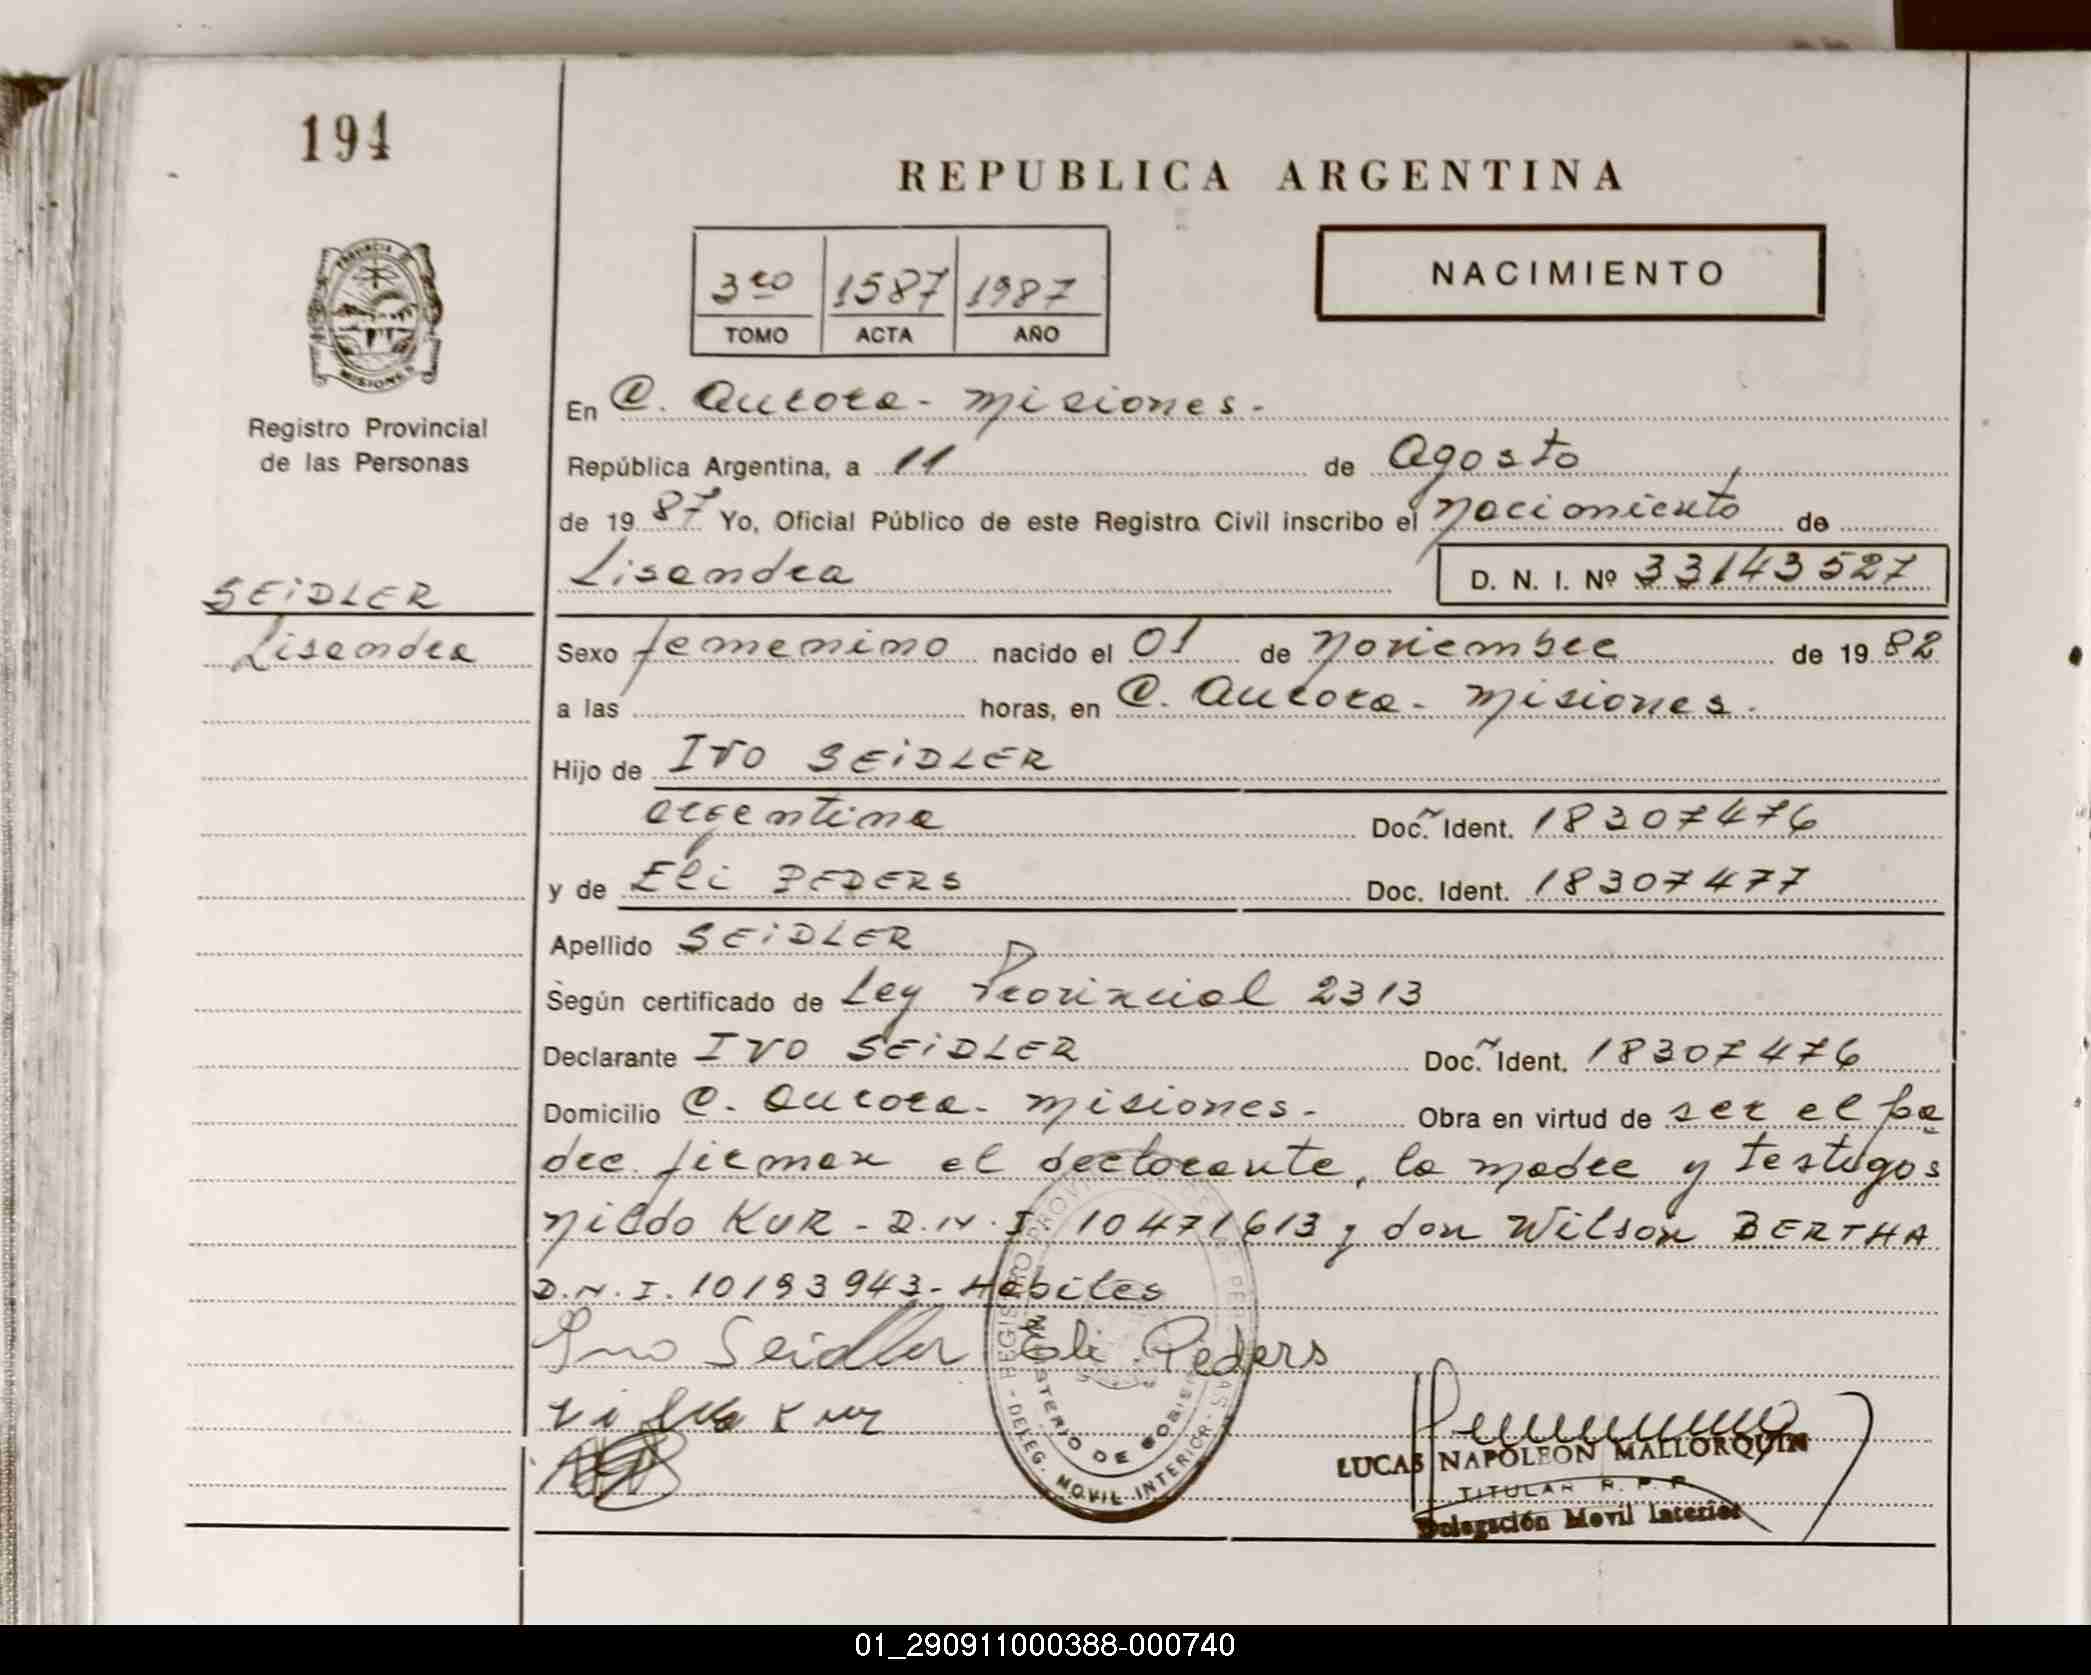 194
REPUBLICA ARGENTINA
PROVINCIA DE
MISIONES
Registro Provincial
de las Personas
3ro 1587 1987
TOMO ACTA AÑO
NACIMIENTO
En C. Aurora - Misiones -
República Argentina, a 11 de Agosto
de 1987 Yo, Oficial Público de este Registro Civil inscribo el Nacimiento de
Lisandra D. N. I. Nº 33143527
SEiDLER
Lisandra
Sexo femenino nacido el 01 de Noviembre de 1982
a las horas, en C. Aurora - Misiones.
Hijo de IVO SEiDLER
argentina Doc. Ident. 18307476
y de Eli PEDERS Doc. Ident. 18307477
Apellido SEiDLER
Según certificado de Ley Provincial 2313
Declarante IVO SEiDLER Doc. Ident. 18307476
Domicilio C. Aurora - Misiones - Obra en virtud de ser el pa
dre. firman el declarante, la madre y testigos
Nildo KUR - D.N.I 10471613 y don Wilson BERTHA
D.N.I. 10193943 - Habiles
Ivo Seidler Eli Peders
Kur
REGISTRO PROVINCIAL DE LAS PERSONAS
MINISTERIO DE GOBIERNO
- DELEG. MOVIL INTERIOR -
LUCAS NAPOLEON MALLORQUIN
TITULAR R. P. P.
Delegación Movil Interior
01_290911000388-000740